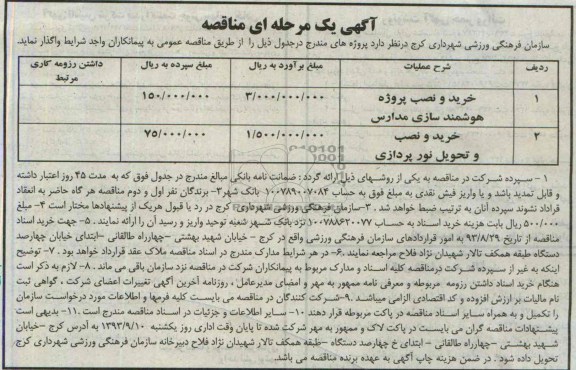 آگهی یک مرحله ای مناقصه
سازمان فرهنگی ورزشی شهرداری کرج درنظر دارد پروژه های مندرج درجدول ذیل را از طریق مناقصه عمومی به پیمانکاران واجد شرایط واگذار نماید.
ردیف شرح عملیات مبلغ برآورد به ریال مبلغ سپرده به ریال داشتن رزومه کاری مرتبط
۱ خرید و نصب پروژه هوشمند سازی مدارس ۳/۰۰۰/۰۰۰/۰۰۰ ۱۵۰/۰۰۰/۰۰۰
۲ خرید و نصب و تحویل نور پردازی ۱/۵۰۰/۰۰۰/۰۰۰ ۷۵/۰۰۰/۰۰۰
۱ - سپرده شرکت در مناقصه به یکی از روشهای ذیل ارائه گردد : ضمانت نامه بانکی مبالغ مندرج در جدول فوق که به مدت ۴۵ روز اعتبار داشته
و قابل تمدید باشد و یا واریز فیش نقدی به مبلغ فوق به حساب ۱۰۰۷۸۹۰۰۷۰۸۴ بانک شهر ۳- برندگان نفر اول و دوم مناقصه هر گاه حاضر به انعقاد
قراداد نشوند سپرده آنان به ترتیب ضبط خواهد شد . ۳-سازمان فرهنگی ورزشی شهرداری کرج در رد یا قبول هریک از پیشنهادها مختار است ۴- مبلغ
۵۰۰/۰۰۰ ریال بابت هزینه خرید اسناد به حساب ۱۰۰۷۸۸۶۲۰۰۷۷ نزد بانک شهر شعبه توحید واریز و رسید آن را ارائه نمایند . ۵- جهت خرید اسناد
مناقصه از تاریخ ۹۳/۸/۲۹ به امور قراردادهای سازمان فرهنگی ورزشی واقع در کرج - خیابان شهید بهشتی -چهارراه طالقانی -ابتدای خیابان چهارصد
دستگاه طبقه همکف تالار شهیدان نژاد فلاح مراجعه نمایند .۶- در هر شرایط مدارک مندرج در اسناد مناقصه ملاک عقد قراداد خواهد بود . ۷- توضیح
اینکه به غیر از سپرده شرکت درمناقصه کلیه اسناد و مدارک مربوط به پیمانکاران شرکت در مناقصه نزد سازمان باقی می ماند .۸- لازم به ذکر است
هنگام خرید اسناد داشتن رزومه مربوطه و معرفی نامه ممهور به مهر و امضای مدیرعامل ، روزنامه آخرین آگهی تغییرات اعضای شرکت ، گواهی ثبت
نام مالیات بر ارزش افزوده و کد اقتصادی الزامی میباشد .۹-شرکت کنندگان در مناقصه می بایست کلیه فرمها و اطلاعات مورد درخواست سازمان
را تکمیل و به همراه سایر اسناد مناقصه در پاکت مربوطه قرار دهند ۱۰- سایر اطلاعات و جزئیات در اسناد مناقصه مندرج است .۱۱- بدیهی است
پیشنهادات مناقصه گران می بایست در پاکت لاک و ممهور به مهر شرکت شده تا پایان وقت اداری روز یکشنبه ۱۳۹۳/۹/۱۰ به آدرس کرج -خیابان
شهید بهشتی -چهارراه طالقانی - ابتدای خ چهارصد دستگاه -طبقه همکف تالار شهیدان نژاد فلاح دبیرخانه سازمان فرهنگی ورزشی شهرداری کرج
تحویل داده شود . در ضمن هزینه چاپ آگهی به عهده برنده مناقصه می باشد.